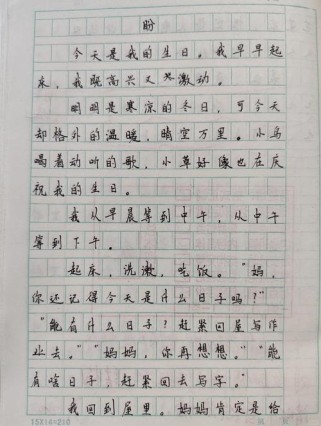 盼
今天是我的生日。我早早起
床,我既高兴又激动。
明明是寒凉的冬日,可今天
却格外的温暖,晴空万里。小鸟
唱着动听的歌,小草好像也在庆
祝我的生日。
我从早晨等到中午,从中午
等到下午。
起床,洗漱,吃饭。“妈,
你还记得今天是什么日子吗?”
“能有什么日子?赶紧回屋写作
业去。”“妈妈,你再想想。”“能
有啥日子,赶紧回去写字。”
我回到屋里。妈妈肯定是给